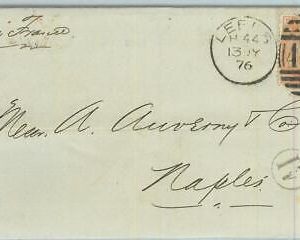 via France
LEEDS
H 44
13 JY
76
4
Messrs. A. Auverny & Co
Naples